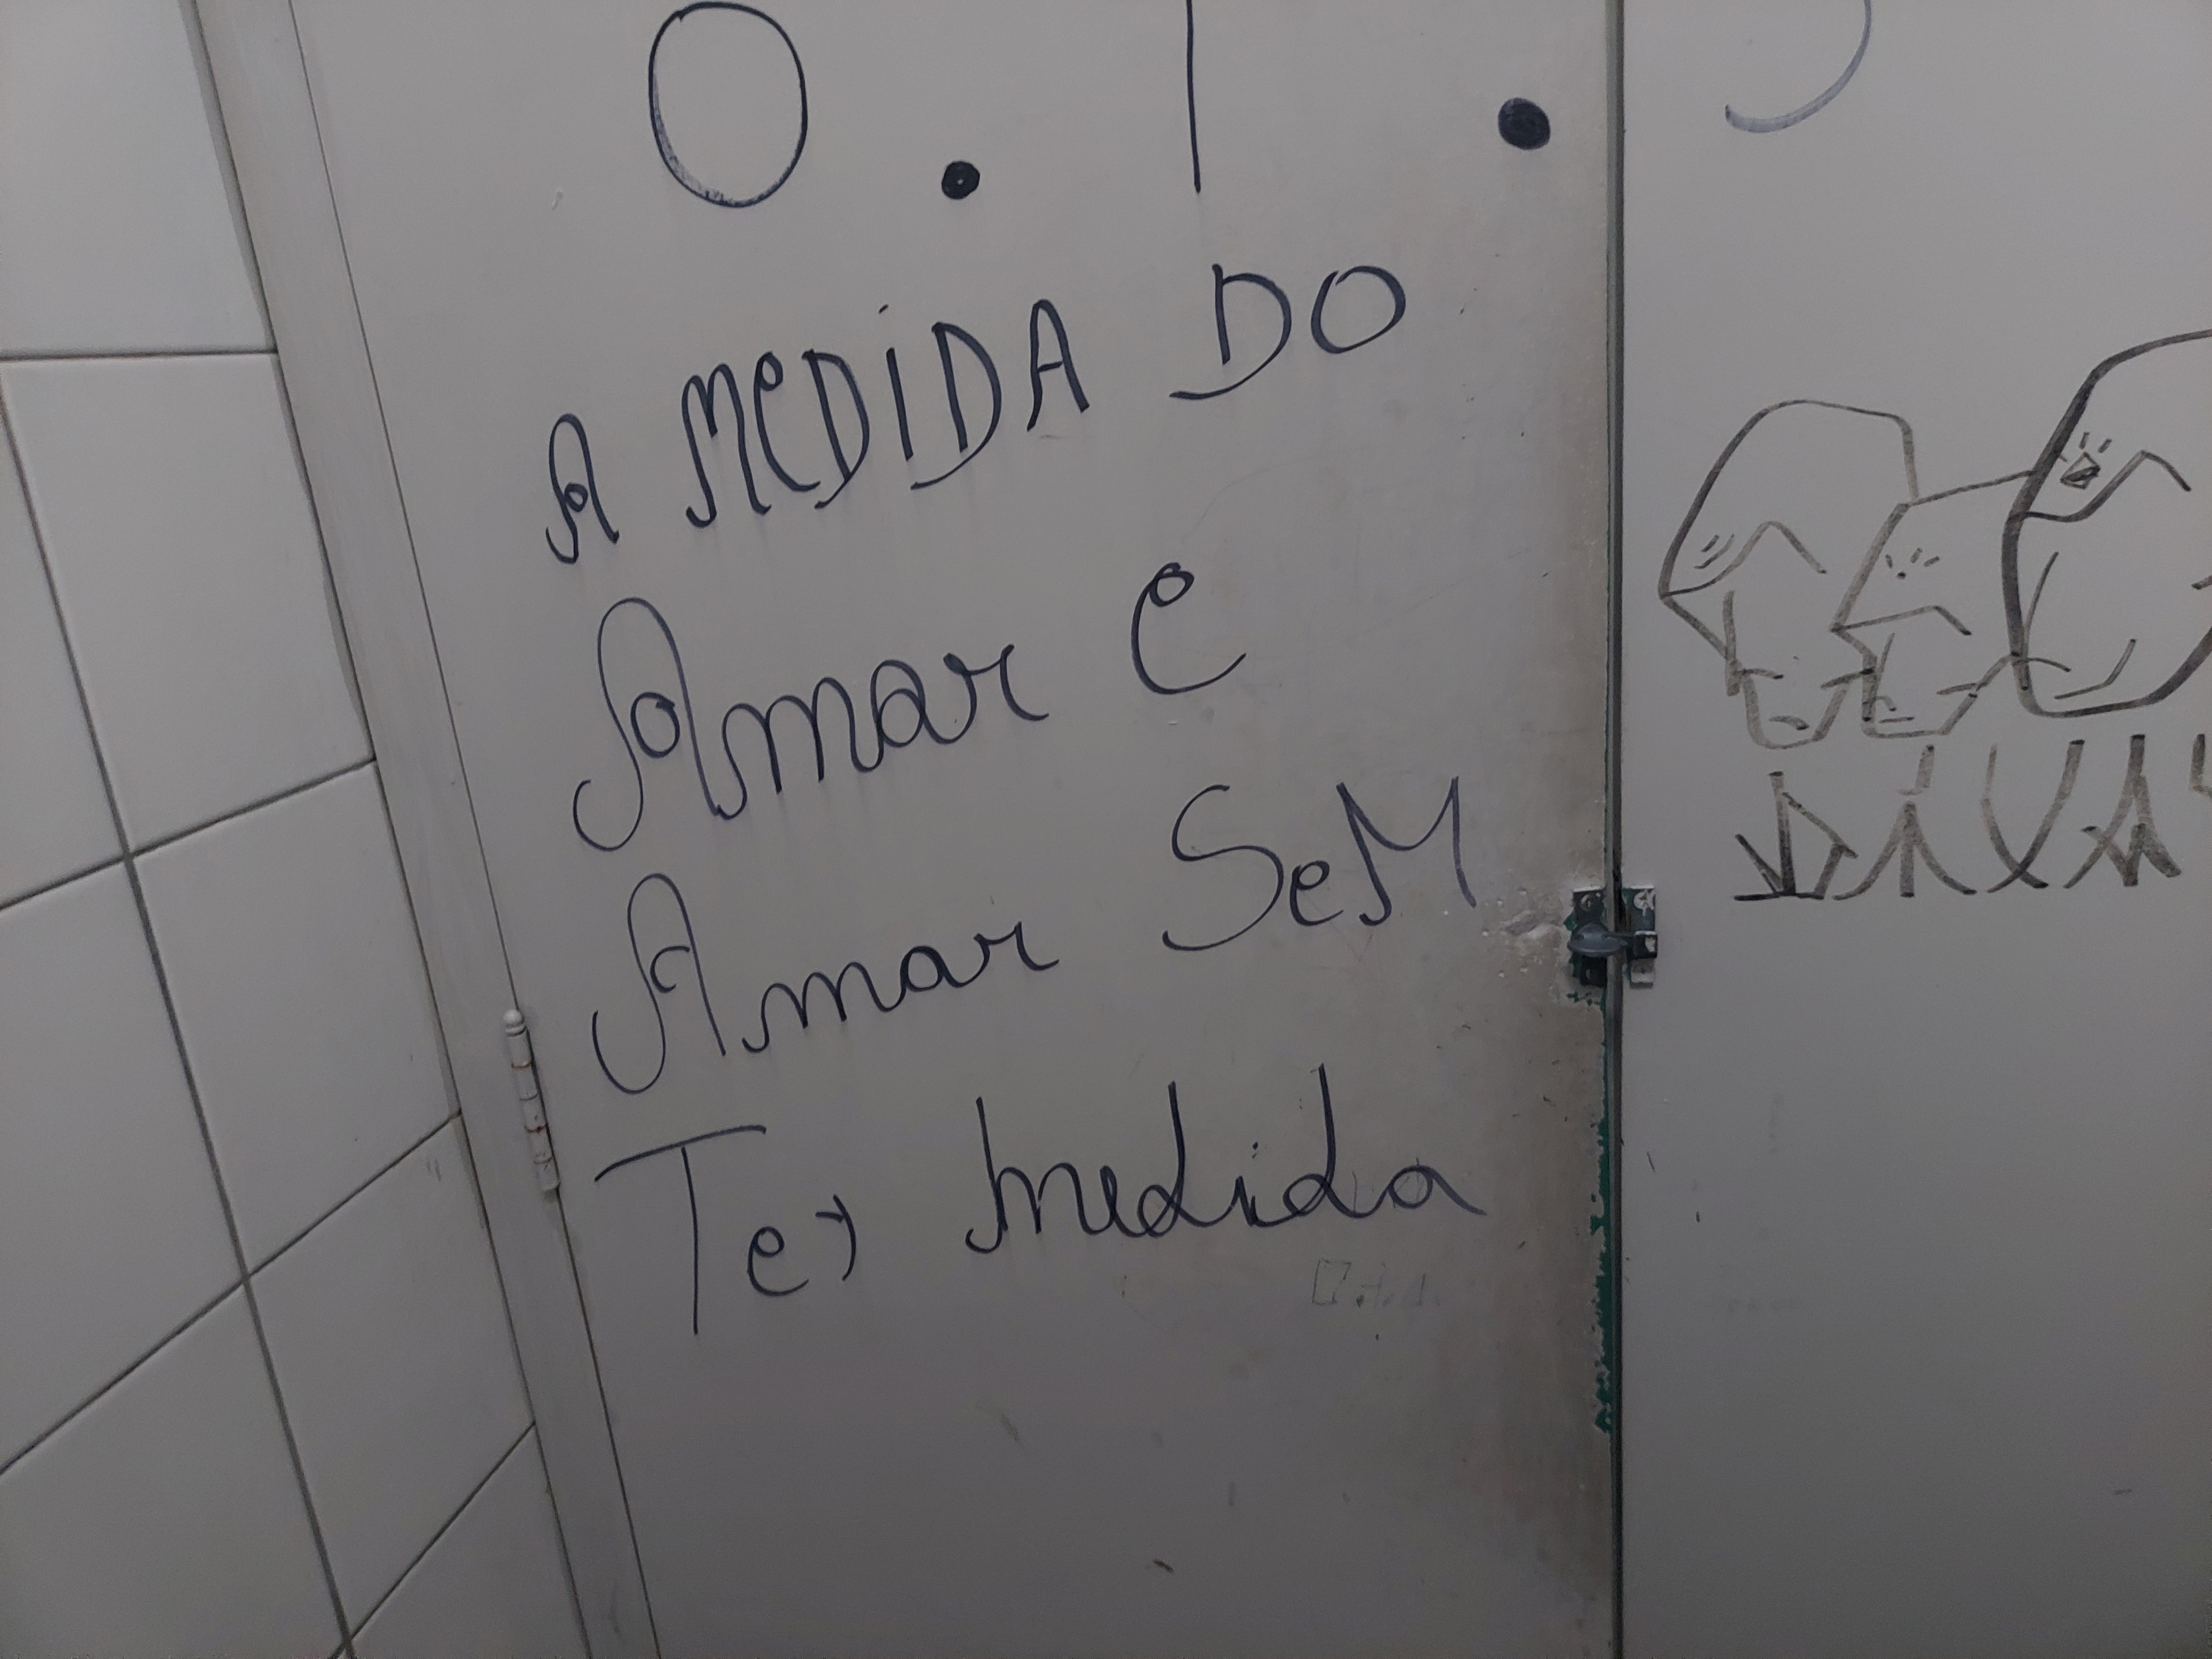 O. I.
A MEDIDA DO
Amar e
Amar SeM
Ter medida
DIVA